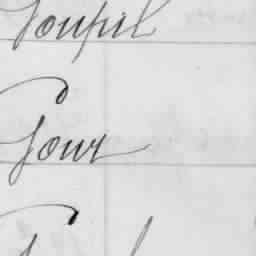 Goupil
Gour